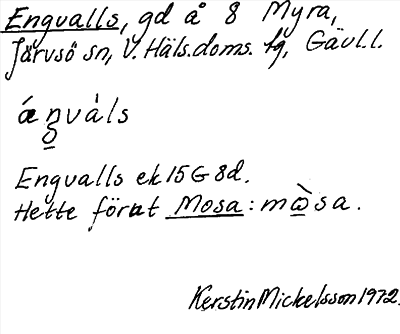 Engvalls, gd å 8 Myra,
Järvsö sn, V. Häls. doms. tg, Gävl. l.
ǽŋvàls
Engvalls ek 15G 8d.
Hette förut Mosa: mὼ̲sa.
Kerstin Mickelsson 1972.